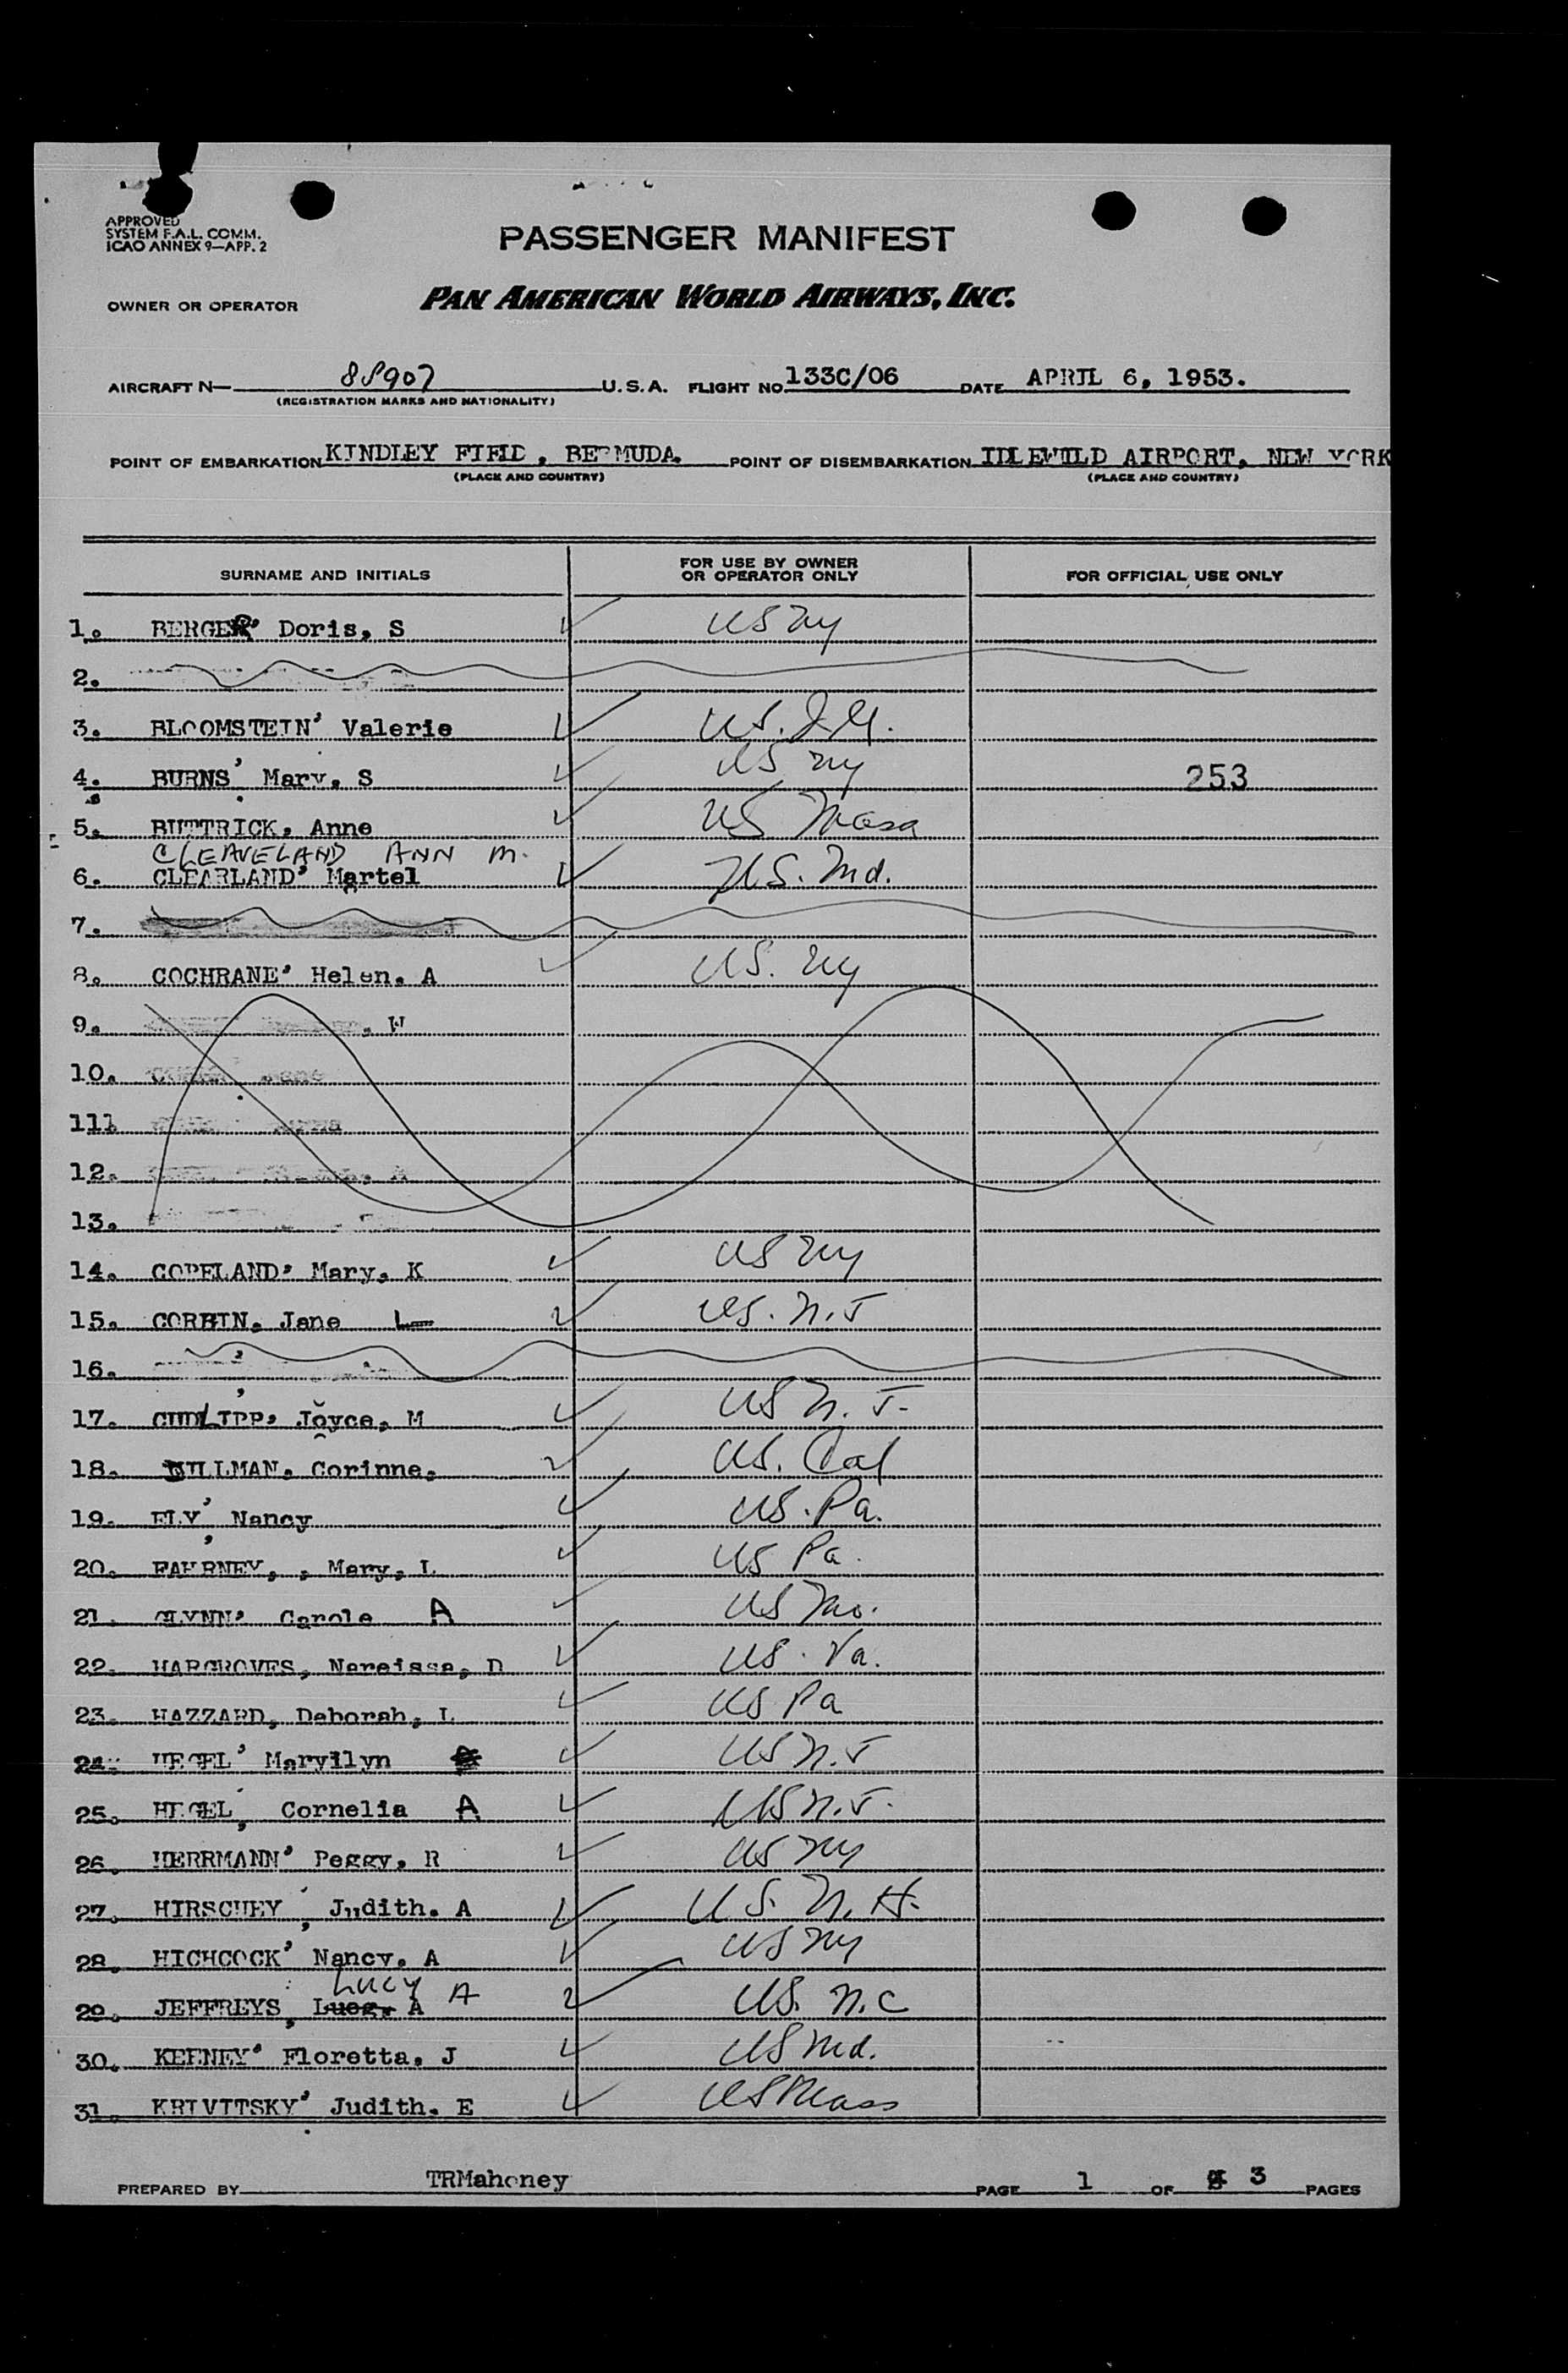 APPROVED
SYSTEM F.A.L. COMM.
ICAO ANNEX 9—APP. 2
PASSENGER MANIFEST
OWNER OR OPERATOR PAN AMERICAN WORLD AIRWAYS, INC.
AIRCRAFT N— 88907 U.S.A. FLIGHT NO 133C/06 DATE APRIL 6, 1953.
(REGISTRATION MARKS AND NATIONALITY)
POINT OF EMBARKATION KINDLEY FIELD, BERMUDA. POINT OF DISEMBARKATION IDLEWILD AIRPORT, NEW YORK
(PLACE AND COUNTRY) (PLACE AND COUNTRY)
SURNAME AND INITIALS FOR USE BY OWNER OR OPERATOR ONLY FOR OFFICIAL USE ONLY
1. BERGER' Doris, S US NY
2.
3. BLOOMSTEIN' Valerie US.
4. BURNS' Mary, S US NY 253
5. BUTTRICK, Anne US Mass
CLEAVELAND ANN M.
6. CLEARLAND' Martel US. Md.
7. J
8. COCHRANE' Helen. A US. NY
9. , W
10.
111
12. , A
13.
14. COPELAND, Mary, K US NY
15. CORBIN, Jane L US. N.J
16.
17. CUDLIPP, Joyce, M US N.J.
18. Corinne, US. Cal
19. ELY, Nancy US. Pa.
20. FAHRNEY, , Mary, L US Pa.
21. GLYNN' Carole A US Mo.
22. HARGROVES, Narcissa, D US. Va.
23. HAZZARD, Deborah, L US Pa
24. HEGEL' Maryilyn US N.J
25. HEGEL, Cornelia A US N.J.
26. HERRMANN' Peggy, R US NY
27. HIRSCHEY, Judith. A U.S. N.H.
28. HICHCOCK' Nancy. A US NY
LUCY A
29. JEFFREYS, A US. N.C
30. KEENEY' Floretta. J US Md.
31. KRIVITSKY' Judith. E US Mass
PREPARED BY TRMahoney PAGE 1 OF 3 PAGES